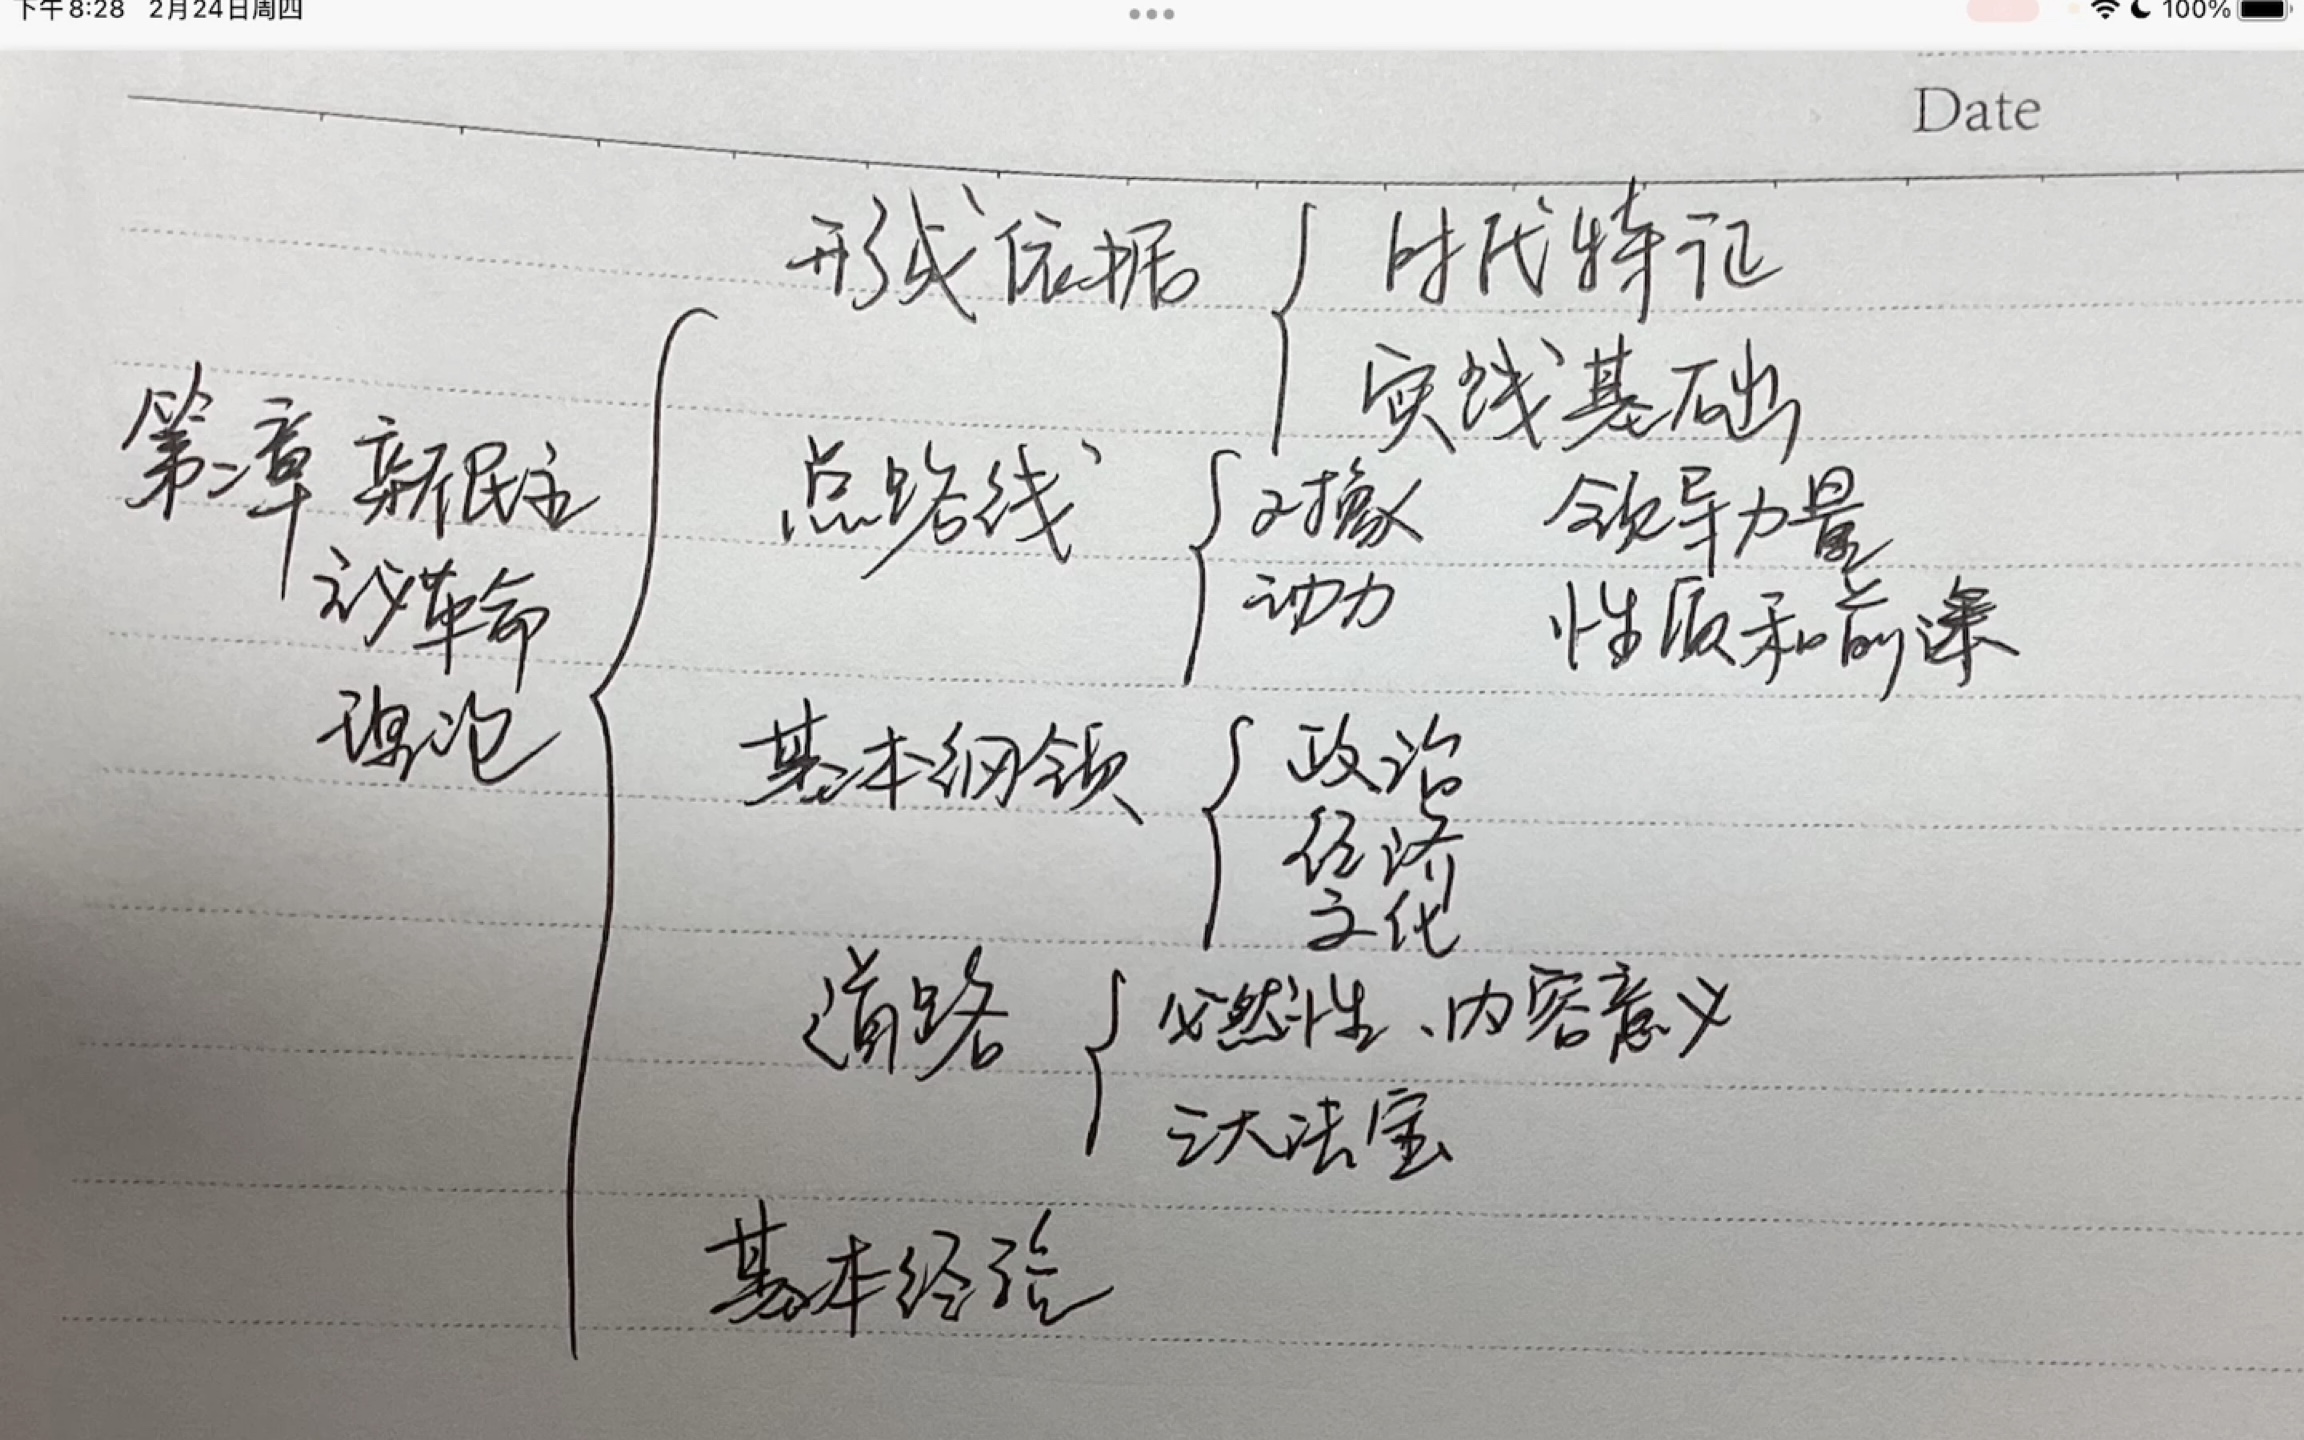 下午8:28 2月24日周四
100%
Date
形成依据
时代特征
实践基础
第二章 新民主
主义革命
理论
总路线
对象 领导力量
动力 性质和前途
基本纲领
政治
经济
文化
道路
必然性、内容意义
三大法宝
基本经验